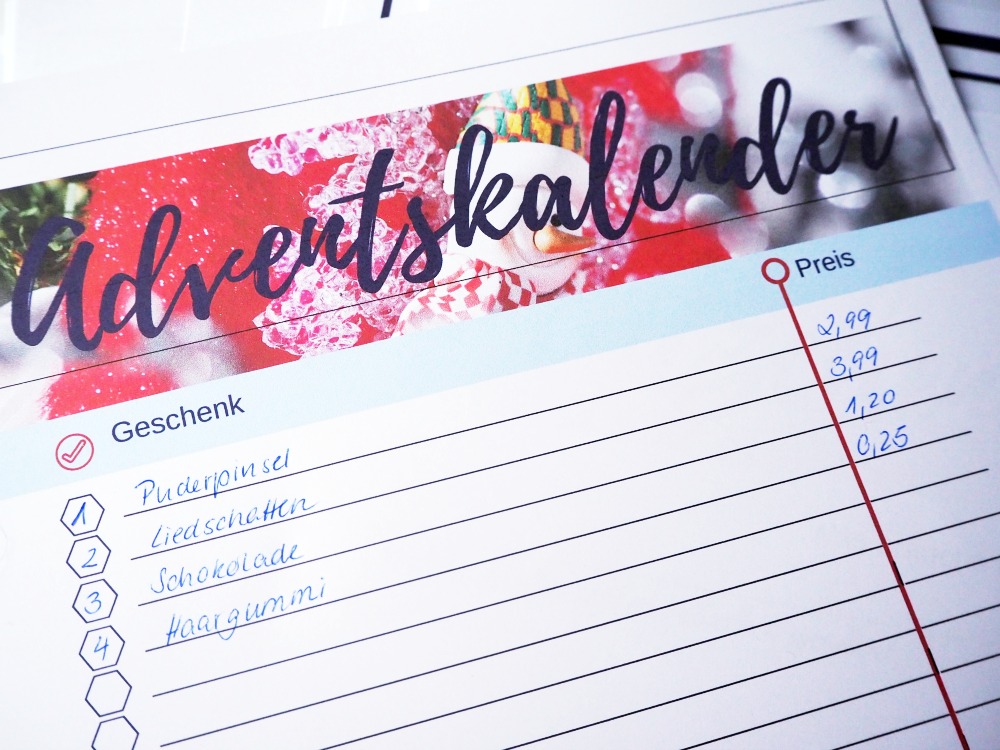 Adventskalender
Geschenk Preis
1 Puderpinsel 2,99
2 Liedschatten 3,99
3 Schokolade 1,20
4 Haargummi 0,25